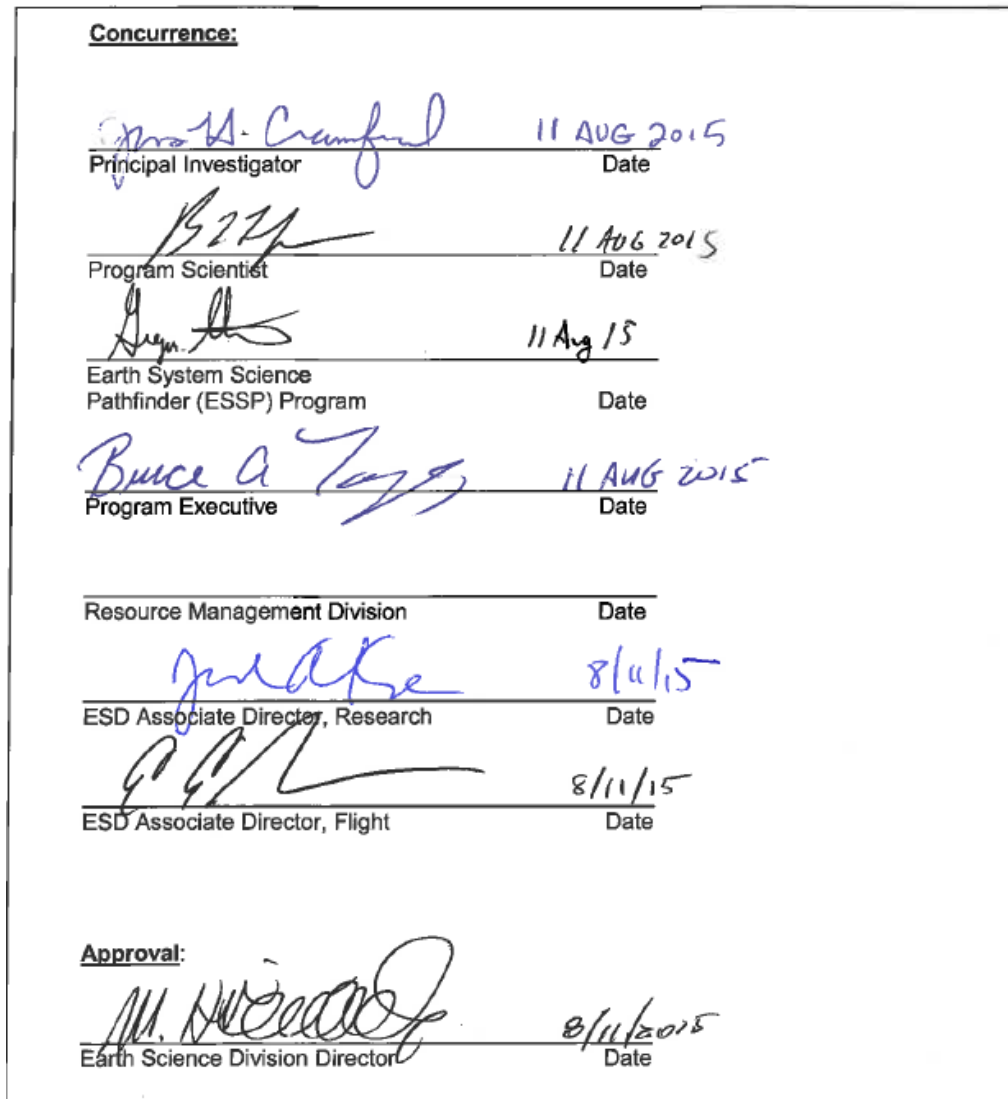 Concurrence:
H. Crawford 11 AUG 2015
Principal Investigator Date
11 AUG 2015
Program Scientist Date
11 Aug 15
Earth System Science
Pathfinder (ESSP) Program Date
Bruce A 11 AUG 2015
Program Executive Date
Resource Management Division Date
8/11/15
ESD Associate Director, Research Date
8/11/15
ESD Associate Director, Flight Date
Approval:
M. 8/11/2015
Earth Science Division Director Date